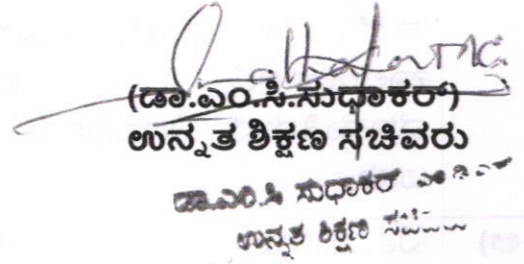 (ಡಾ.ಎಂ.ಸಿ.ಸುಧಾಕರ್)
ಉನ್ನತ ಶಿಕ್ಷಣ ಸಚಿವರು
ಡಾ.ಎಂ.ಸಿ ಸುಧಾಕರ್
ಉನ್ನತ ಶಿಕ್ಷಣ